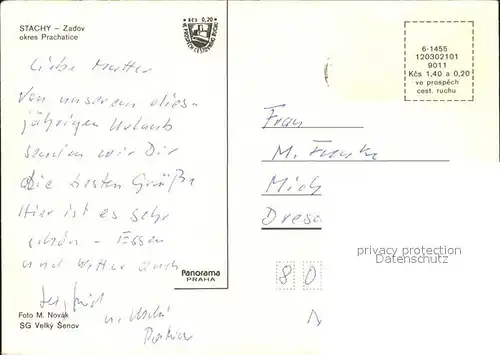 STACHY – Zadov
okres Prachatice
KčS 0,20
VE PROSPĚCH CESTOVNÍHO RUCHU
6-1455
120302101
9011
Kčs 1,40 a 0,20
ve prospěch
cest. ruchu
Liebe Mutter
Von unserem dies-
jährigen Urlaub
senden wir Dir
die besten Grüße
Hier ist es sehr
schön – Essen
und Wetter auch
Frau
M. Funke
Mich
Dresd
privacy protection
Datenschutz
80
Panorama
PRAHA
Foto M. Novák
SG Velký Šenov